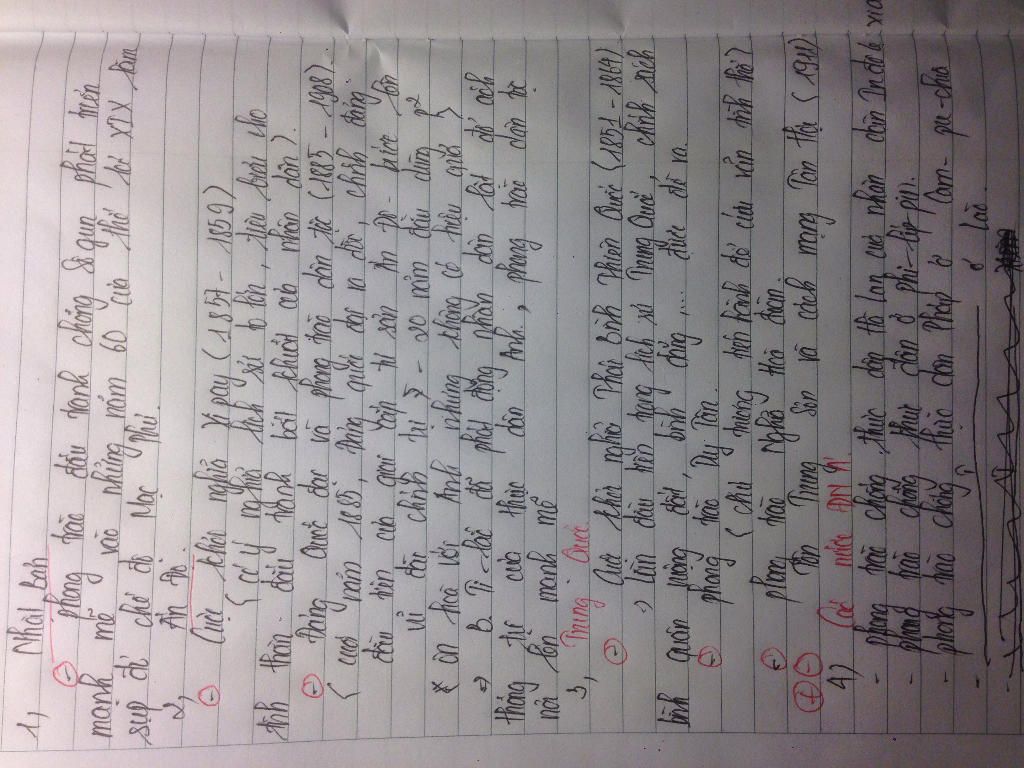 1, Nhật Bản
- phong trào đấu tranh chống Sô gun phát triển
mạnh mẽ vào những năm 60 của thế kỉ XIX làm
sụp đổ chế độ Mạc Phủ.
2, Ấn Độ.
- Cuộc khởi nghĩa Xi pay (1857 - 1859)
( có ý nghĩa lịch sử to lớn, tiêu biểu cho
tinh thần đấu tranh bất khuất của nhân dân).
- Đảng Quốc đại và phong trào dân tộc (1885 - 1908)
( cuối năm 1885, Đảng quốc đại ra đời, chính đảng
đầu tiên của giai cấp tư sản Ấn Độ bước lên
vũ đài chính trị 5 - 20 năm đầu dùng p2
ôn hoà với Anh nhưng không có hiệu quả }
=> B. Ti-lắc đã phát động nhân dân lật đổ ách
thống trị của thực dân Anh, phong trào dân tộc
nổi lên mạnh mẽ
3, Trung Quốc
- Cuộc khởi nghĩa Thái Bình Thiên Quốc (1851 - 1864)
-> lần đầu tiên trong lịch sử Trung Quốc chính sách
bình quân ruộng đất, bình đẳng... được đề ra.
- phong trào Duy Tân.
( chủ trương tiến hành để cứu vãn tình thế)
- phong trào Nghĩa Hoà đoàn.
- Tôn Trung Sơn và cách mạng Tân Hợi (1911)
4) Các nước ĐN Á.
- phong trào chống thực dân Hà Lan của nhân dân In-đô-nê-xi-a
- phong trào chống thực dân ở phi-lip-pin.
- phong trào chống thực dân Pháp ở Cam-pu-chia
- ở Lào.